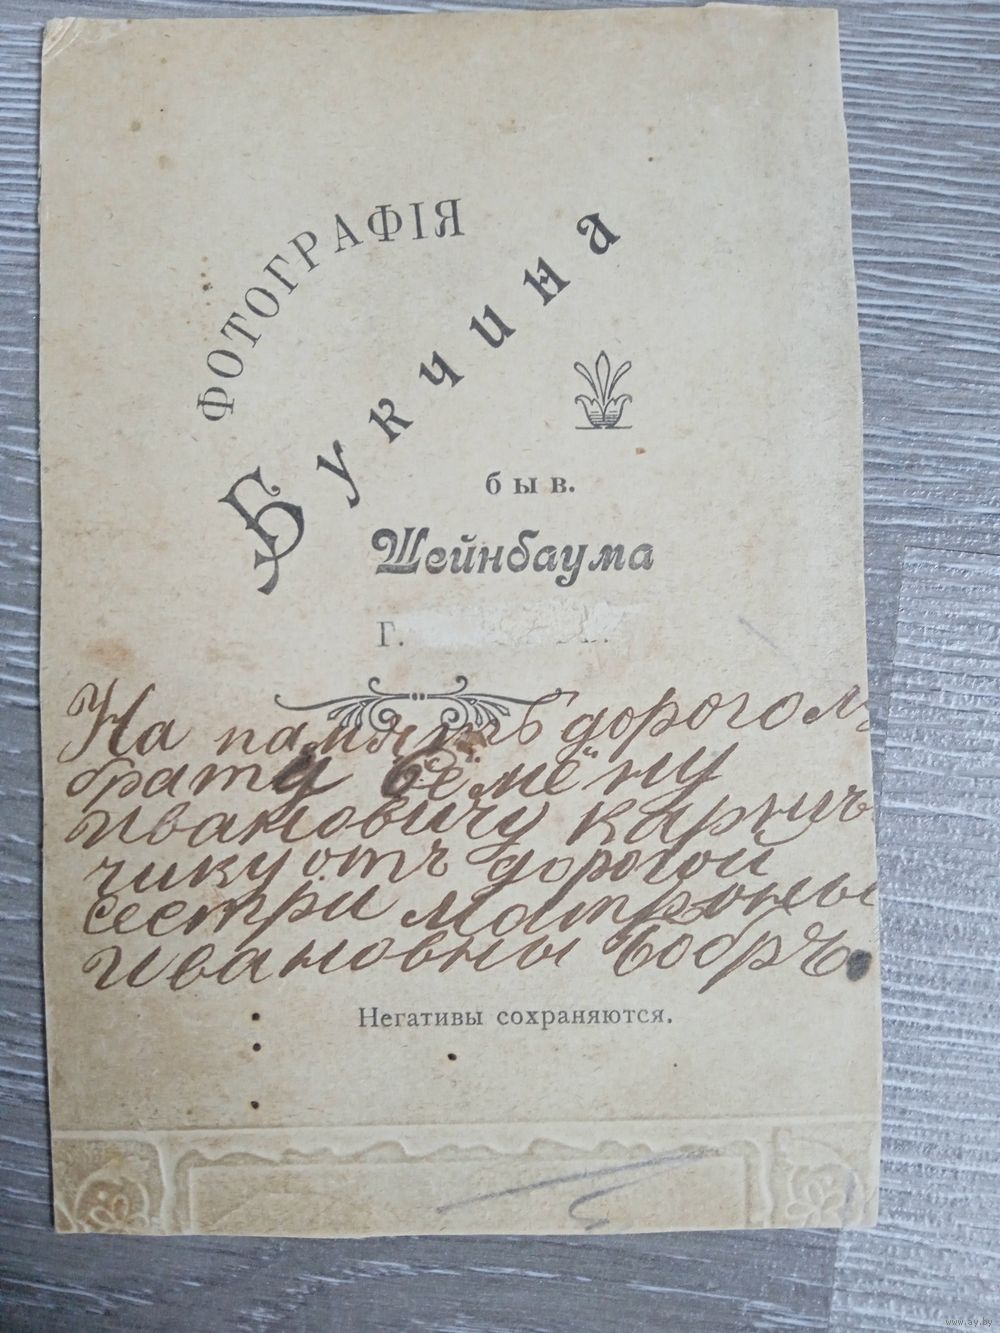 ФОТОГРАФІЯ
Букчина
быв.
Шейнбаума
Г.
На память дорогом
брату Семёну
Ивановичу Карпи
чику отъ дорогой
сестри Матроны
Ивановны Бобръ
Негативы сохраняются.
www.ay.by